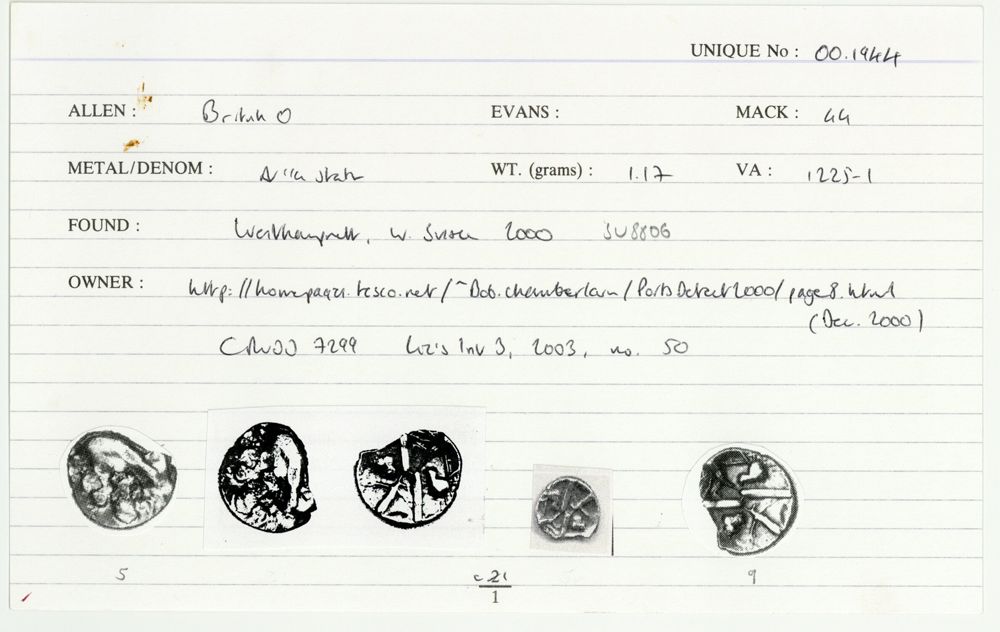 UNIQUE No : 00.1944
ALLEN : British O EVANS : MACK : 44
METAL/DENOM : WT. (grams) : 1.17 VA : 1225-1
FOUND : Westhampnett, W. Sussex 2000 SU8806
OWNER : http://homepages.tesco.net/~Dob.chamberlain/PortsDetect2000/page8.html
(Dec. 2000)
7299 Liz's Inv 3, 2003, no. 50
5 c.21 9
1